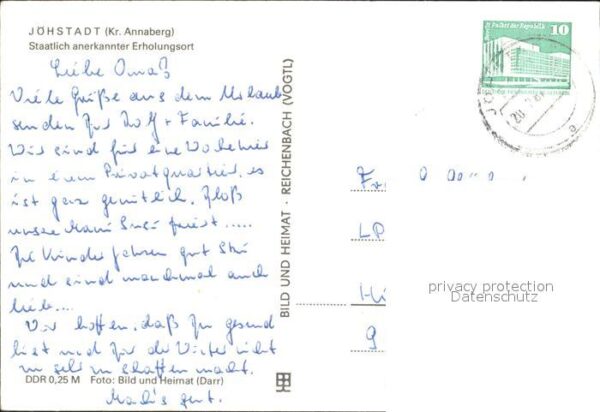 JÖHSTADT (Kr. Annaberg)
Staatlich anerkannter Erholungsort
Liebe Oma!
Viele Grüße aus dem Urlaub
senden Rolf + Familie.
Wir sind für eine Woche hier
in einem Privatquartier, es
ist ganz gemütlich. Bloß
unsere friert.....
Die Kinder fahren gut Ski
und sind manchmal auch
lieb...
Wir hoffen, daß Du gesund
bist und für der Winter nicht
zu sehr zu schaffen macht.
Mach's gut.
DDR 0,25 M Foto: Bild und Heimat (Darr)
BILD UND HEIMAT · REICHENBACH (VOGTL)
Palast der Republik
10
LP
Hi
9
privacy protection
Datenschutz